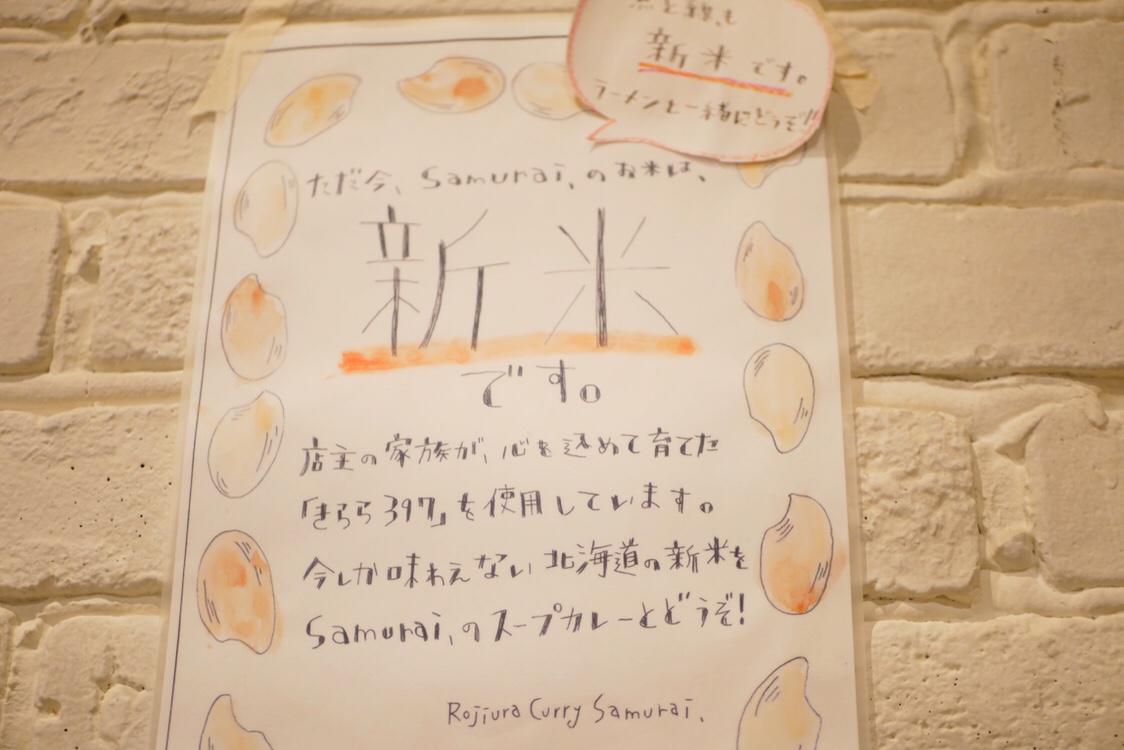 新米です。
ラーメンと一緒にどうぞ!!
ただ今、Samurai.のお米は、
新米
です。
店主の家族が、心を込めて育てた
「きらら397」を使用しています。
今しか味わえない北海道の新米を
Samurai.のスープカレーとどうぞ!
Rojiura Curry Samurai.